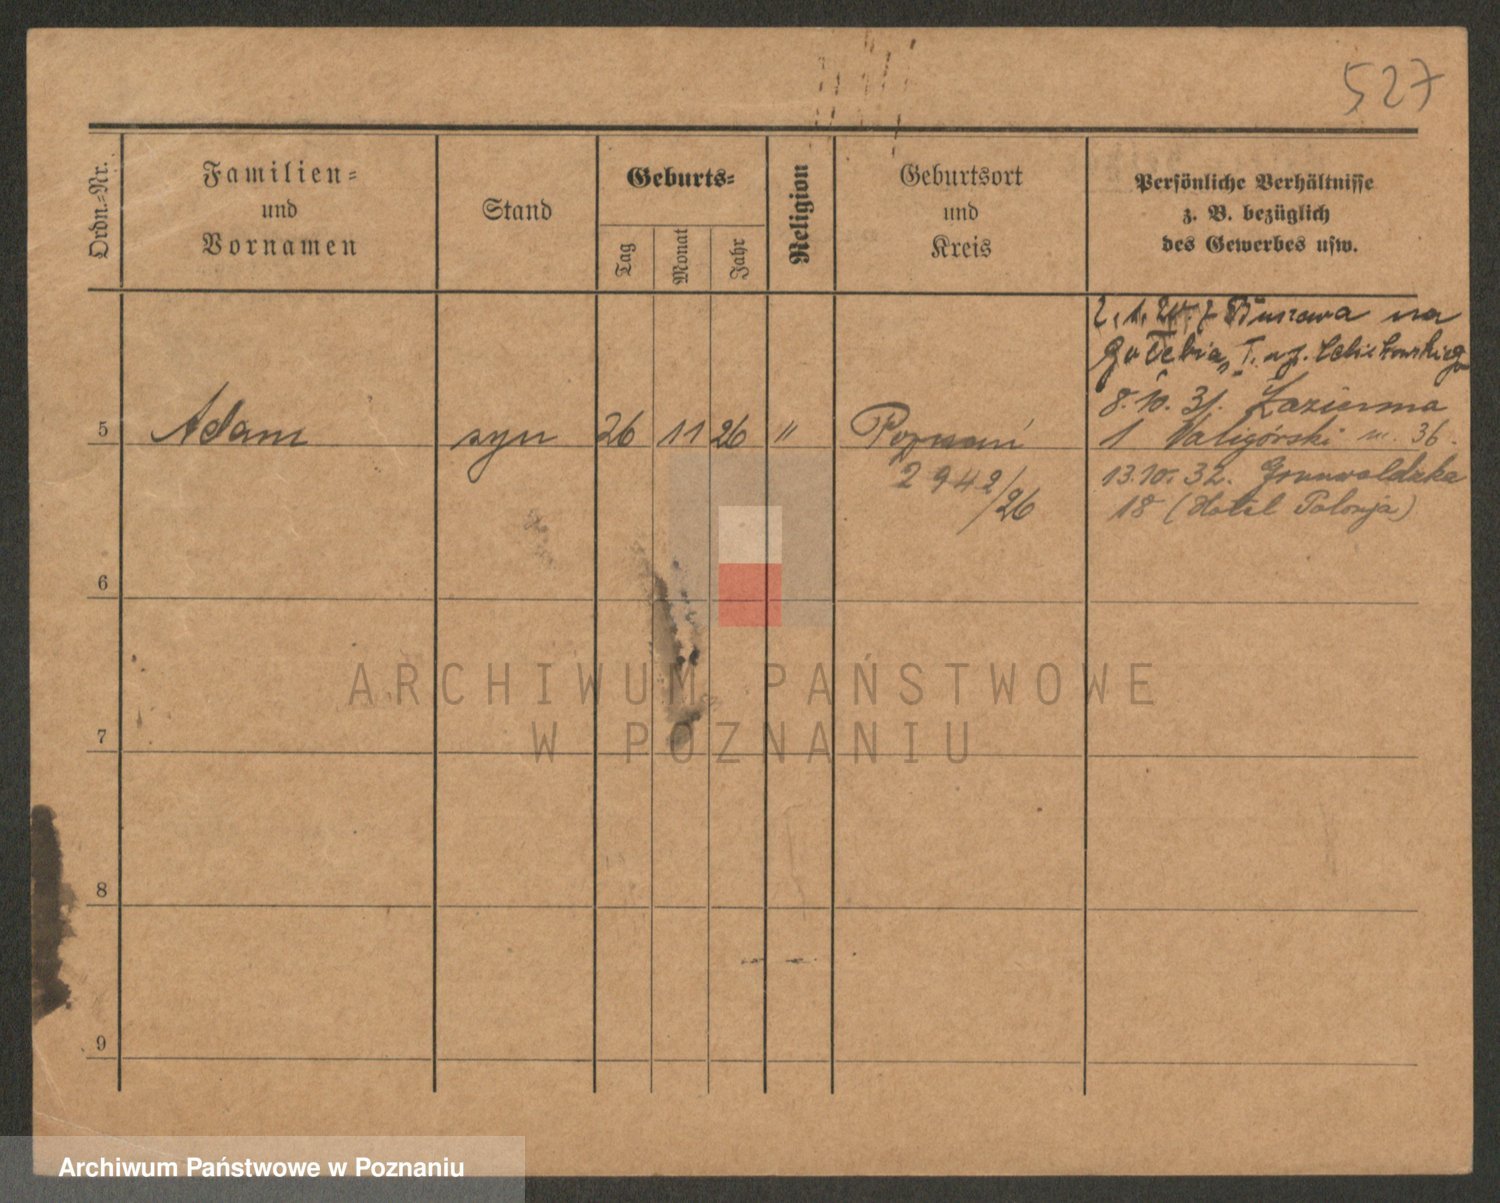 527
Ordn.-Nr.
Familien-
und
Vornamen
Stand
Geburts-
Tag
Monat
Jahr
Religion
Geburtsort
und
Kreis
Persönliche Verhältnisse
z. B. bezüglich
des Gewerbes usw.
na
8.10.31. Łazienna
5 Adam syn 26 11 26 " Poznań
1 Waligórski m. 36.
2942/26
13.10.32. Grunwaldzka
18 (Hotel Polonja)
6
7
8
9
ARCHIWUM PAŃSTWOWE
W POZNANIU
Archiwum Państwowe w Poznaniu